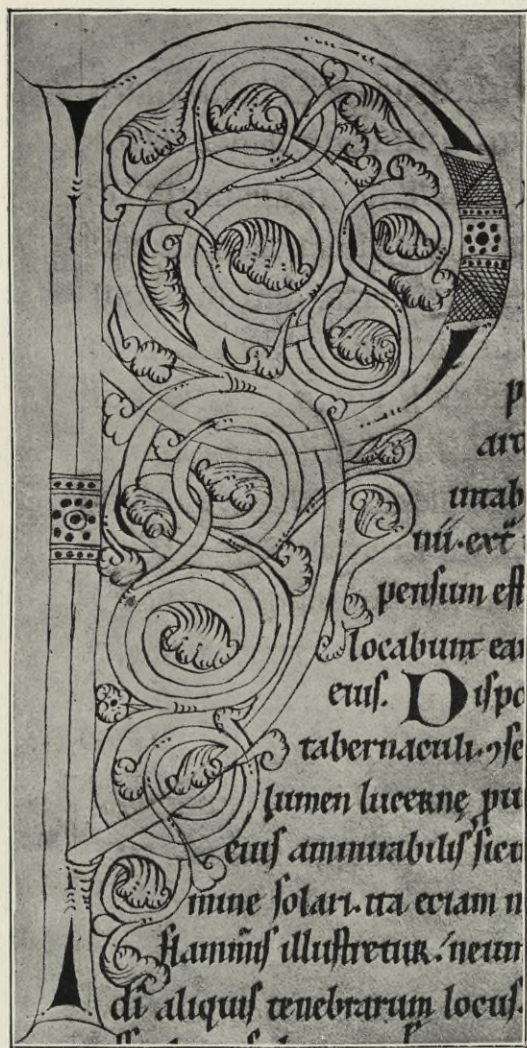 p
aro
intab
nii·ext̄
pensum est
locabunt ea
eius. Dispo
tabernaculi·ꝯse
lumen lucernę pu
eius amminabilis sicu
mine solari·ita etiam n
flāmis illustretur/neun
di aliquis tenebrarum locus.